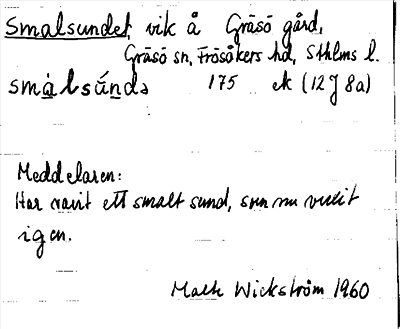 Smalsundet, vik å Gräsö gård,
Gräsö sn, Frösåkers hd, Sthlms l.
smạ̀lsúndə 175 ek (12J 8a)
Meddelaren:
Har varit ett smalt sund, som nu vuxit
igen.
Wickström 1960